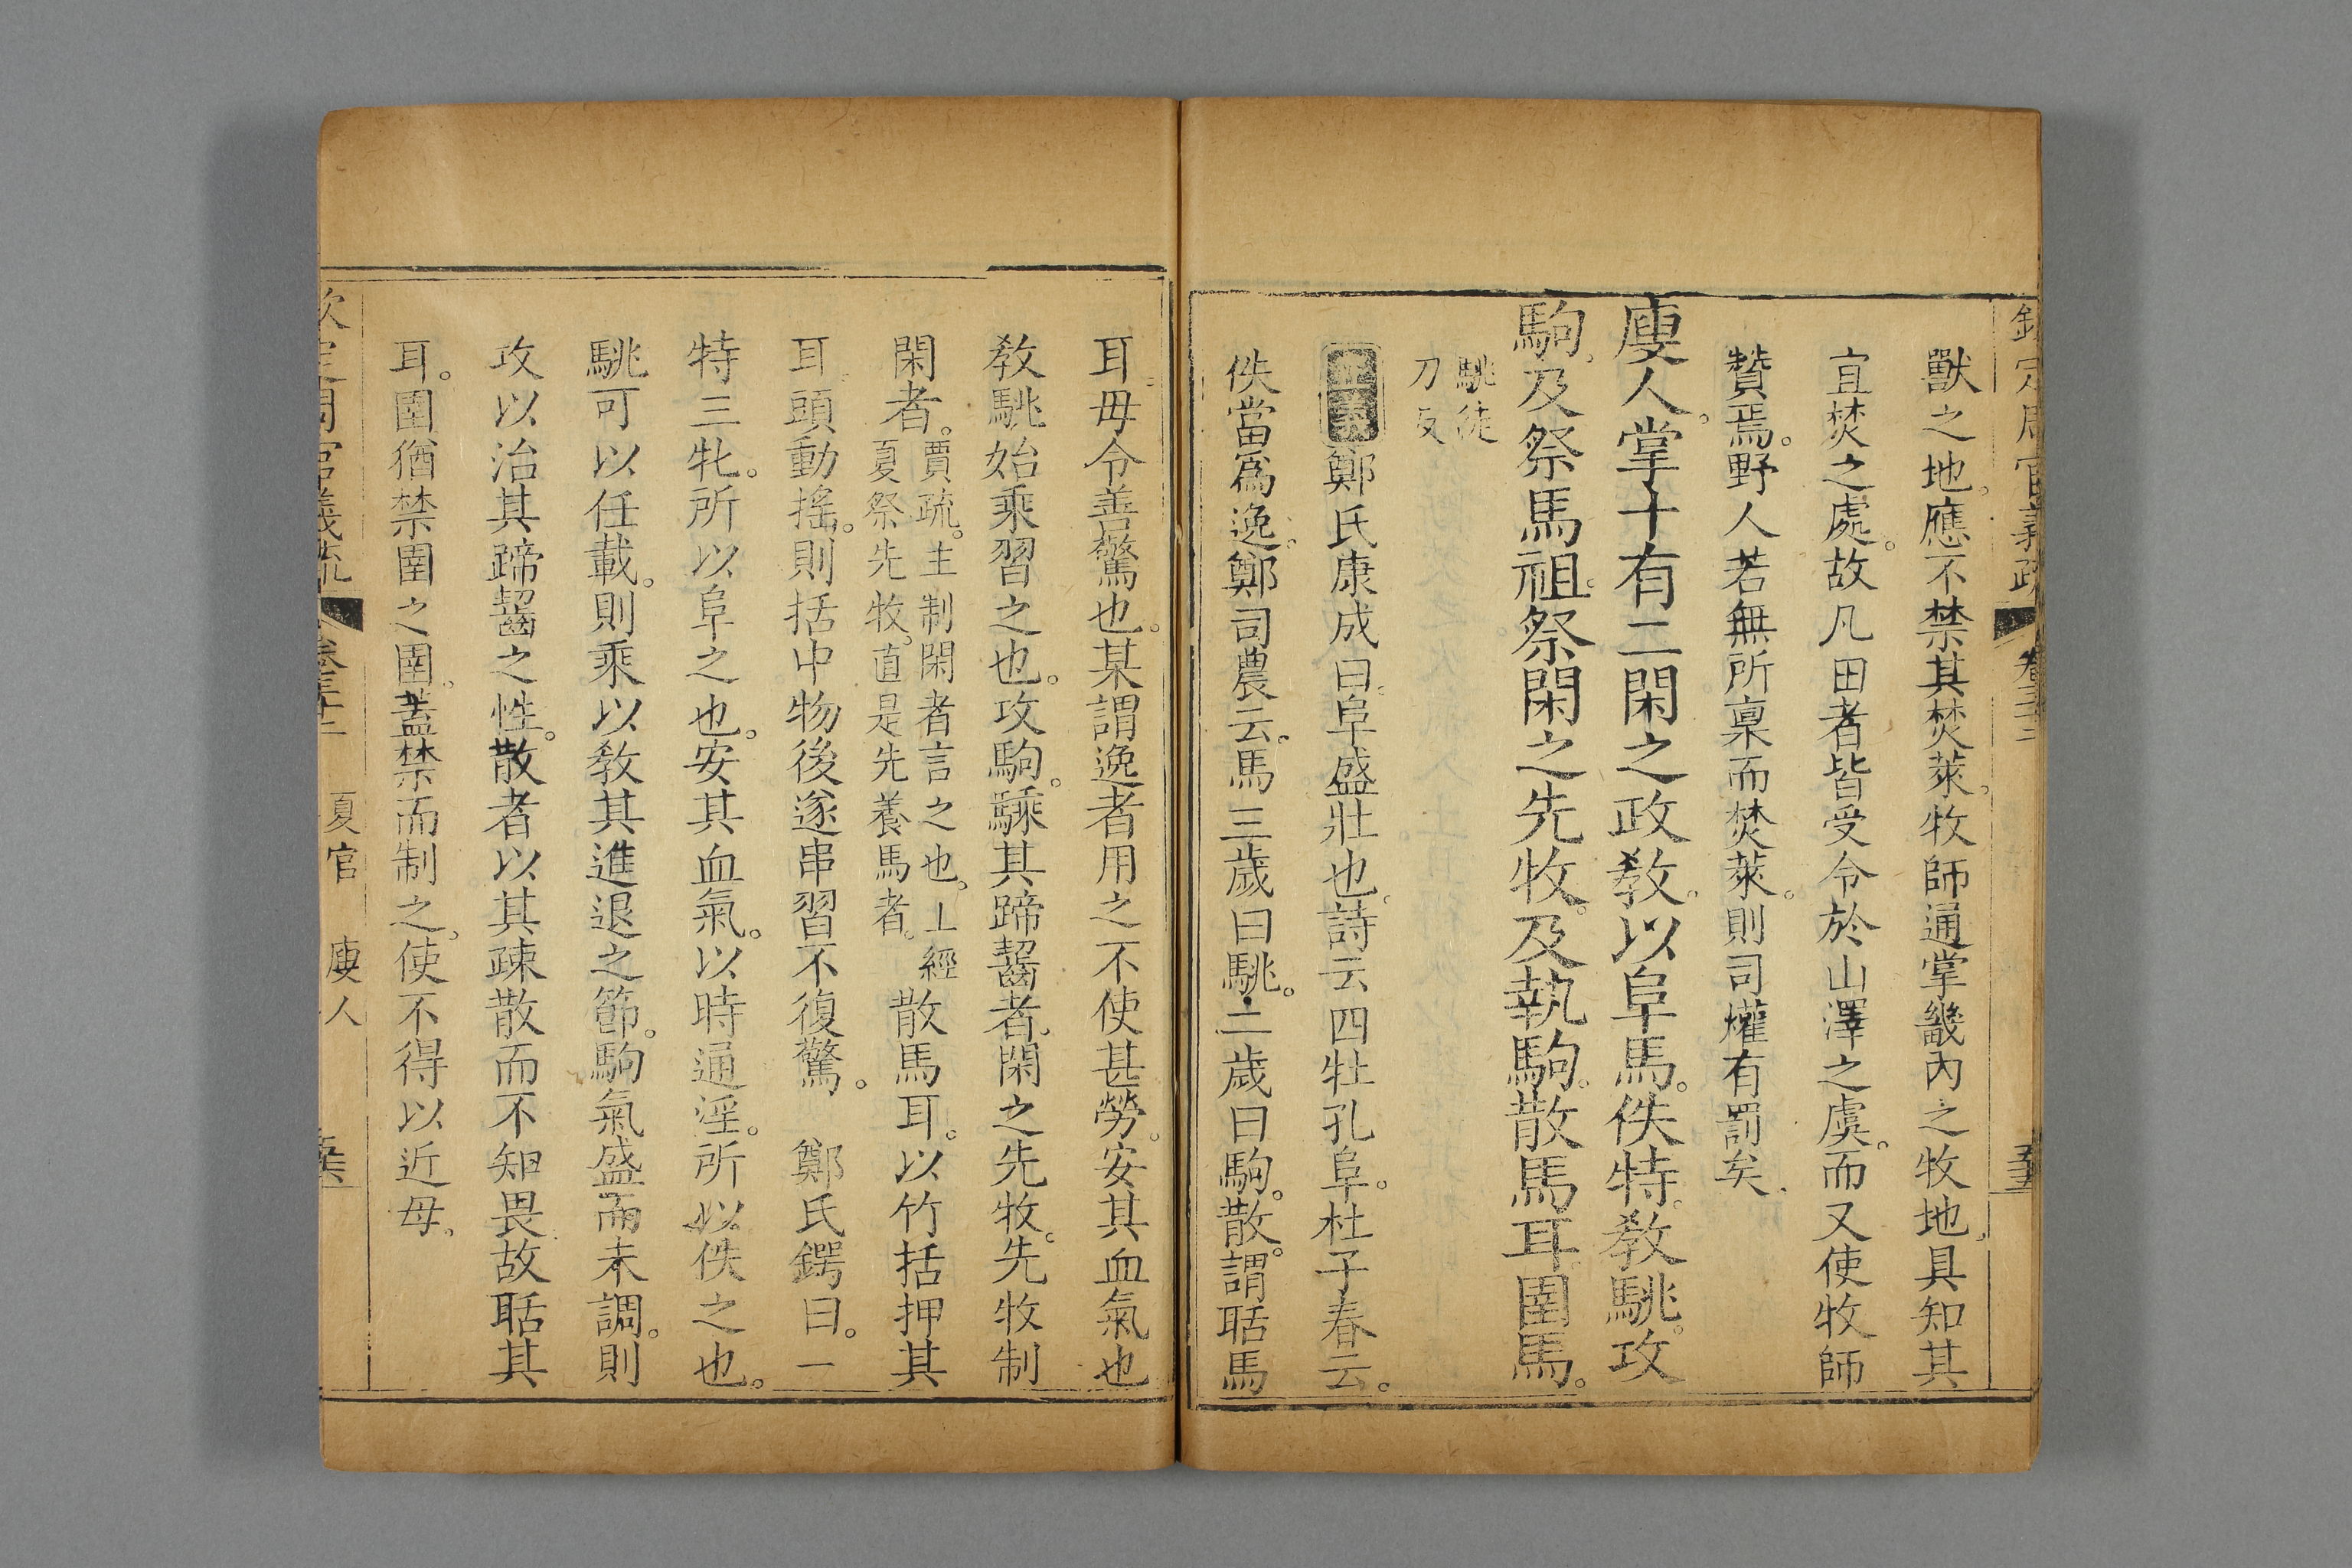 欽定周官義疏 卷三十二 夏官
獸之地。應不禁其焚萊。牧師通掌畿內之牧地。具知其
宜焚之處。故凡田者皆受令於山澤之虞。而又使牧師
贊焉。野人若無所稟而焚萊。則司爟有罰矣。
廋人。掌十有二閑之政教。以阜馬。佚特。教駣。攻
駒。及祭馬祖。祭閑之先牧。及執駒。散馬耳。圉馬。
駣徒
刀反
正義鄭氏康成曰。阜盛壯也。詩云四牡孔阜。杜子春云。
佚當爲逸。鄭司農云。馬三歲曰駣。二歲曰駒。散。謂聒馬
耳。毋令善驚也。某謂逸者用之不使甚勞。安其血氣也
教駣始乘習之也。攻駒。騬其蹄齧者。閑之先牧。先牧制
閑者。賈疏。主制閑者言之也。上經
夏祭先牧。直是先養馬者。散馬耳。以竹括押其
耳。頭動搖。則括中物後遂串習不復驚。 鄭氏鍔曰。一
特三牝。所以阜之也。安其血氣。以時通淫。所以佚之也。
駣可以任載。則乘以教其進退之節。駒氣盛而未調。則
攻以治其蹄齧之性。散者以其疎散而不知畏故聒其
耳。圉猶禁圉之圉。蓋禁而制之。使不得以近母。
欽定周官義疏 卷三十二 夏官 廋人